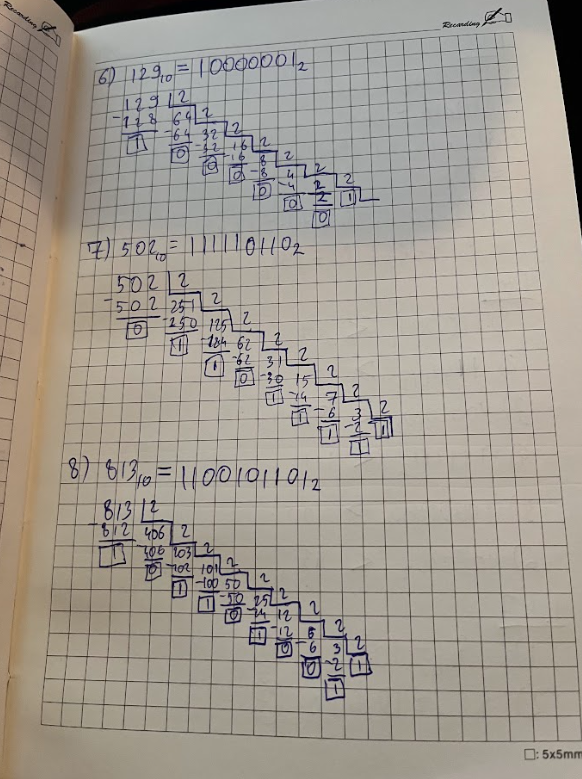 Recording
Recording
6) 129₁₀ = 10000001₂
129 2
-128 64 2
1 -64 32 2
0 -32 16 2
0 -16 8 2
0 -8 4 2
0 -4 2 2
0 2 1
0
7) 502₁₀ = 111110110₂
502 2
-502 251 2
0 -250 125 2
1 -124 62 2
1 -62 31 2
0 -30 15 2
1 -14 7 2
1 -6 3 2
1 -2 1
1
8) 813₁₀ = 1100101101₂
813 2
-812 406 2
1 -406 203 2
0 -202 101 2
1 -100 50 2
1 -50 25 2
0 -24 12 2
1 -12 6 2
0 -6 3 2
0 -2 1
1
□: 5x5mm